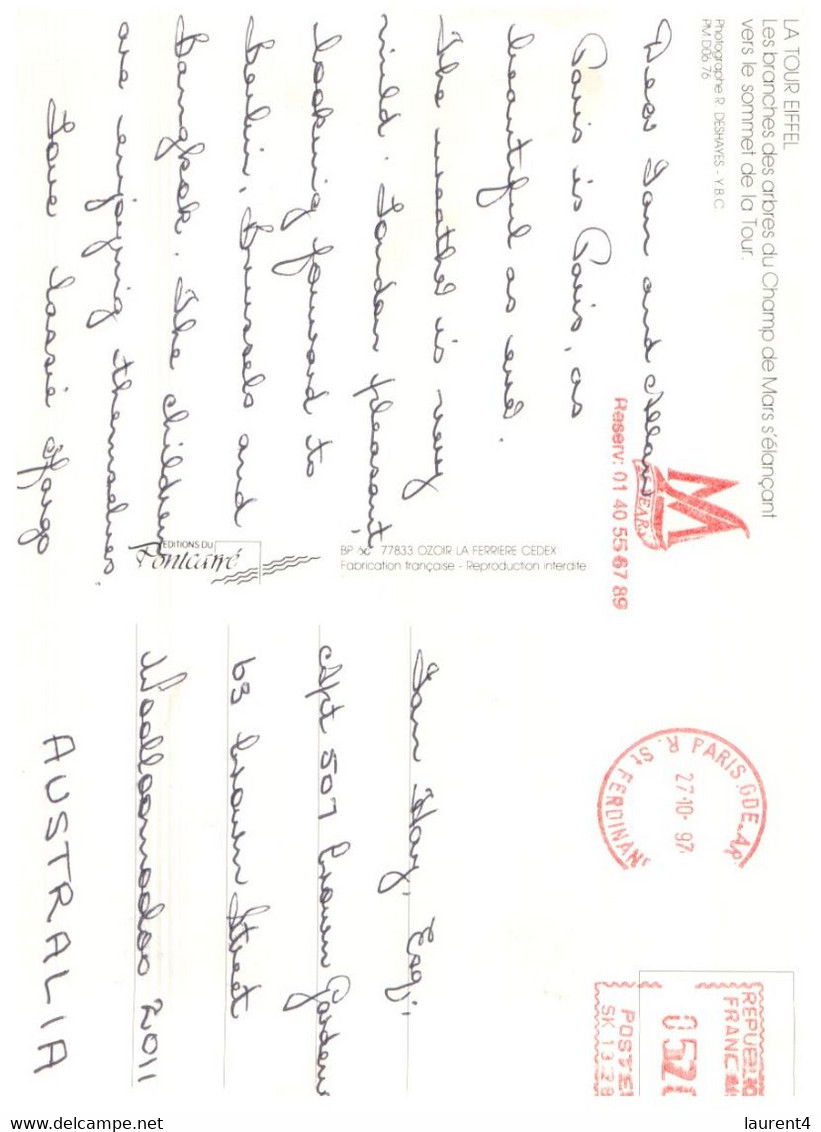 LA TOUR EIFFEL
Les branches des arbres du Champ de Mars s'élançant
vers le sommet de la Tour.
Photographe R. DESHAYES - Y.B.C.
PM D06 76
Dear Ian and Allan
Paris is Paris, as
beautiful as ever.
The weather is very
mild. London pleasant,
looking forward to
Berlin, Brussels and
Bangkok. The children
are enjoying themselves.
Love
EDITIONS DU
Pontcarré
BP 60 77833 OZOIR LA FERRIERE CEDEX
Fabrication française - Reproduction interdite
Reserv: 01 40 55 67 89
PARIS GDE AR
R. St FERDINAN
27-10- 97
REPUBLI
FRANC
052
POSTE
SK 13 28
Ian Hay, Esq,
Apt 507 Crown Gardens
63 Crown Street
Woolloomooloo 2011
AUSTRALIA
laurent4